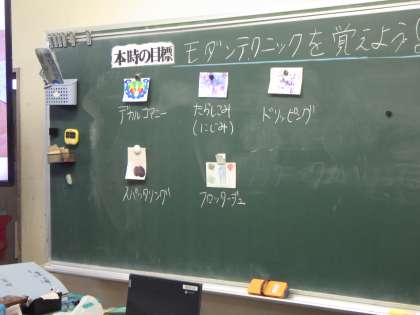 本時の目標
モダンテクニックを覚えよう！
デカルコマニー
たらしこみ
(にじみ)
ドリッピング
スパッタリング
フロッタージュ